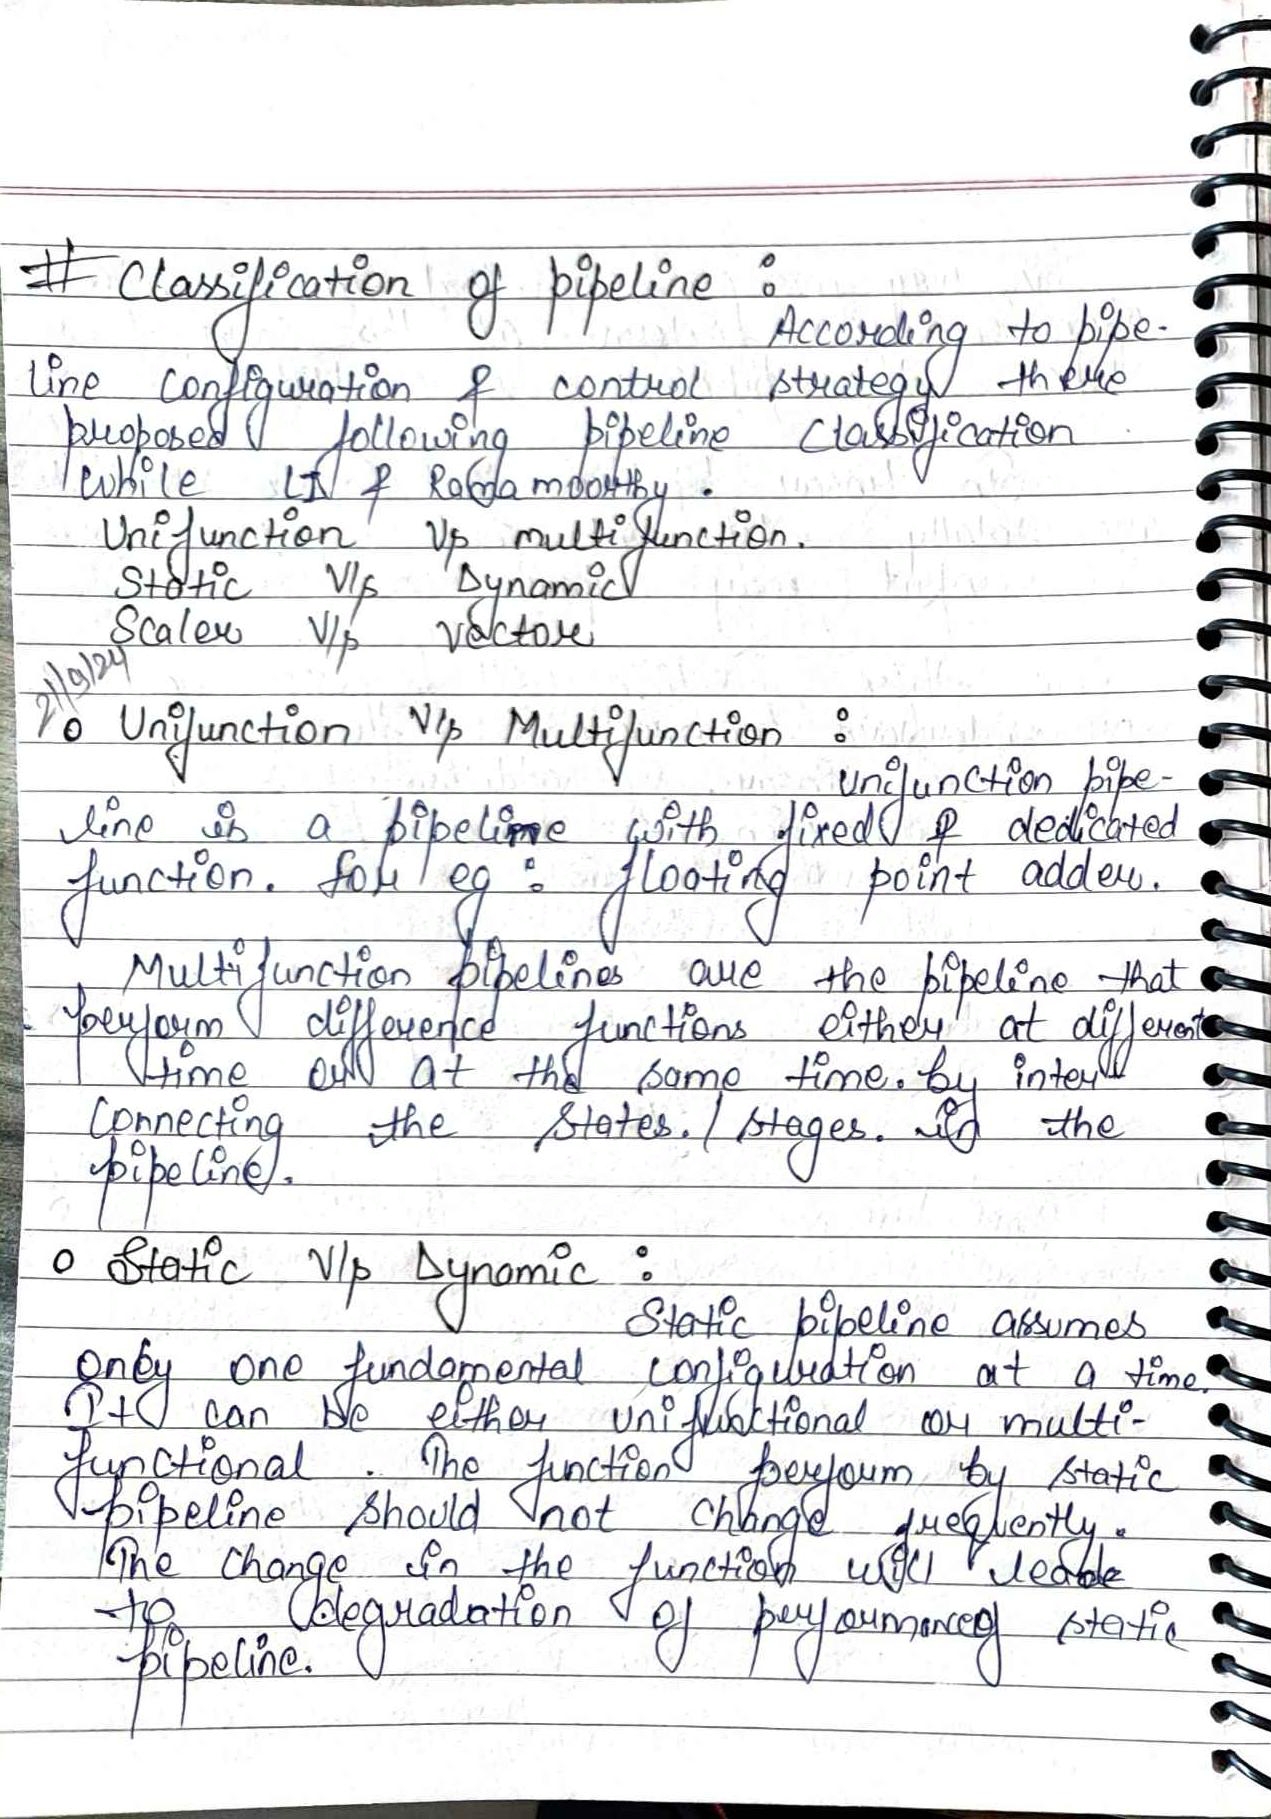 # Classification of pipeline :
According to pipe-
line configuration & control strategy there
proposed following pipeline classification
while LI & Ramamoorthy.
Unifunction V/s multifunction.
Static V/s Dynamic
Scaler V/s vector
21/9/24
o Unifunction V/s Multifunction :
Unifunction pipe-
line is a pipeline with fixed & dedicated
function. for eg : floating point adder.
Multifunction pipelines are the pipeline that
perform difference functions either at different
time or at the same time. by inter
connecting the states. / stages. in the
pipeline.
o Static V/s Dynamic :
Static pipeline assumes
only one fundamental configuration at a time.
It can be either unifunctional or multi-
functional . The function perform by static
pipeline should not change frequently.
The change in the function will leade
to degradation of performance of static
pipeline.